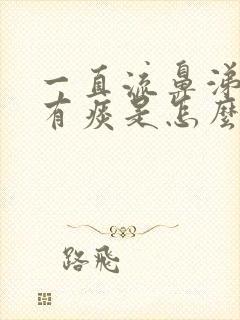 一直流鼻涕
有痰是怎麼
路飛